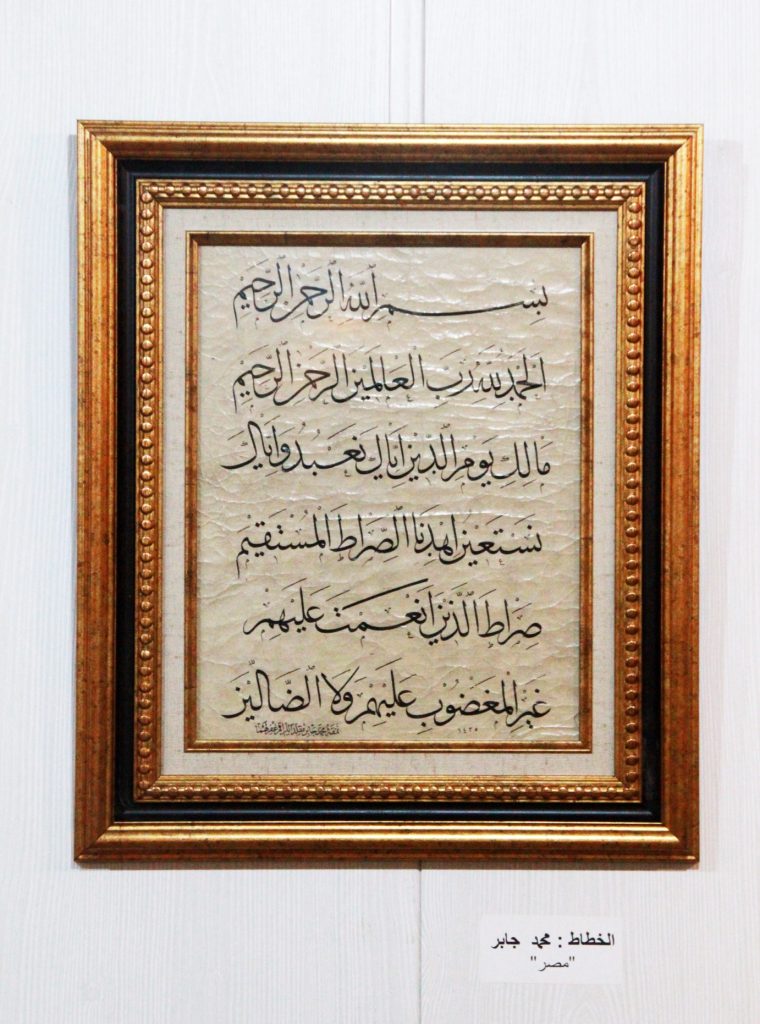 بِسْمِ اللّٰهِ الرَّحْمٰنِ الرَّحِيْمِ
اَلْحَمْدُ لِلّٰهِ رَبِّ الْعَالَمِيْنَ الرَّحْمٰنِ الرَّحِيْمِ
مَالِكِ يَوْمِ الدِّيْنِ اِيَّاكَ نَعْبُدُ وَاِيَّاكَ
نَسْتَعِيْنُ اِهْدِنَا الصِّرَاطَ الْمُسْتَقِيْمَ
صِرَاطَ الَّذِيْنَ اَنْعَمْتَ عَلَيْهِمْ
غَيْرِ الْمَغْضُوْبِ عَلَيْهِمْ وَلَا الضَّالِّيْنَ
١٤٢٥
الخطاط : محمد جابر
"مصر"